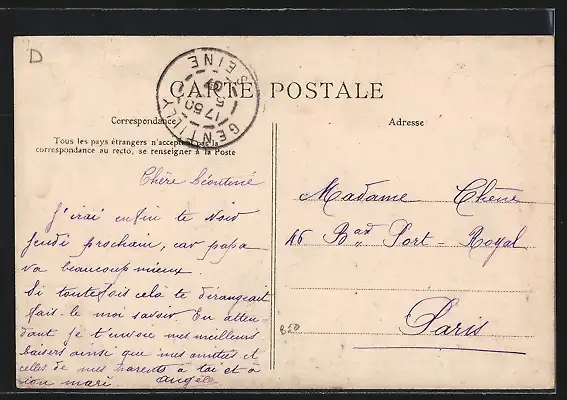 D
GENTILLY
SEINE
17 50
5
CARTE POSTALE
Correspondance
Adresse
Tous les pays étrangers n'acceptent pas la
correspondance au recto, se renseigner à la Poste
Chère Léontine
J'irai enfin te voir
jeudi prochain, car papa
va beaucoup mieux.
Si toutefois cela te dérangeait
fais-le moi savoir En atten-
dant je t'envoie mes meilleurs
baisers ainsi que mes amitiés et
celles de mes parents à toi et à
ton mari Angèle
Madame Chêne
46 Bard Port-Royal
Paris